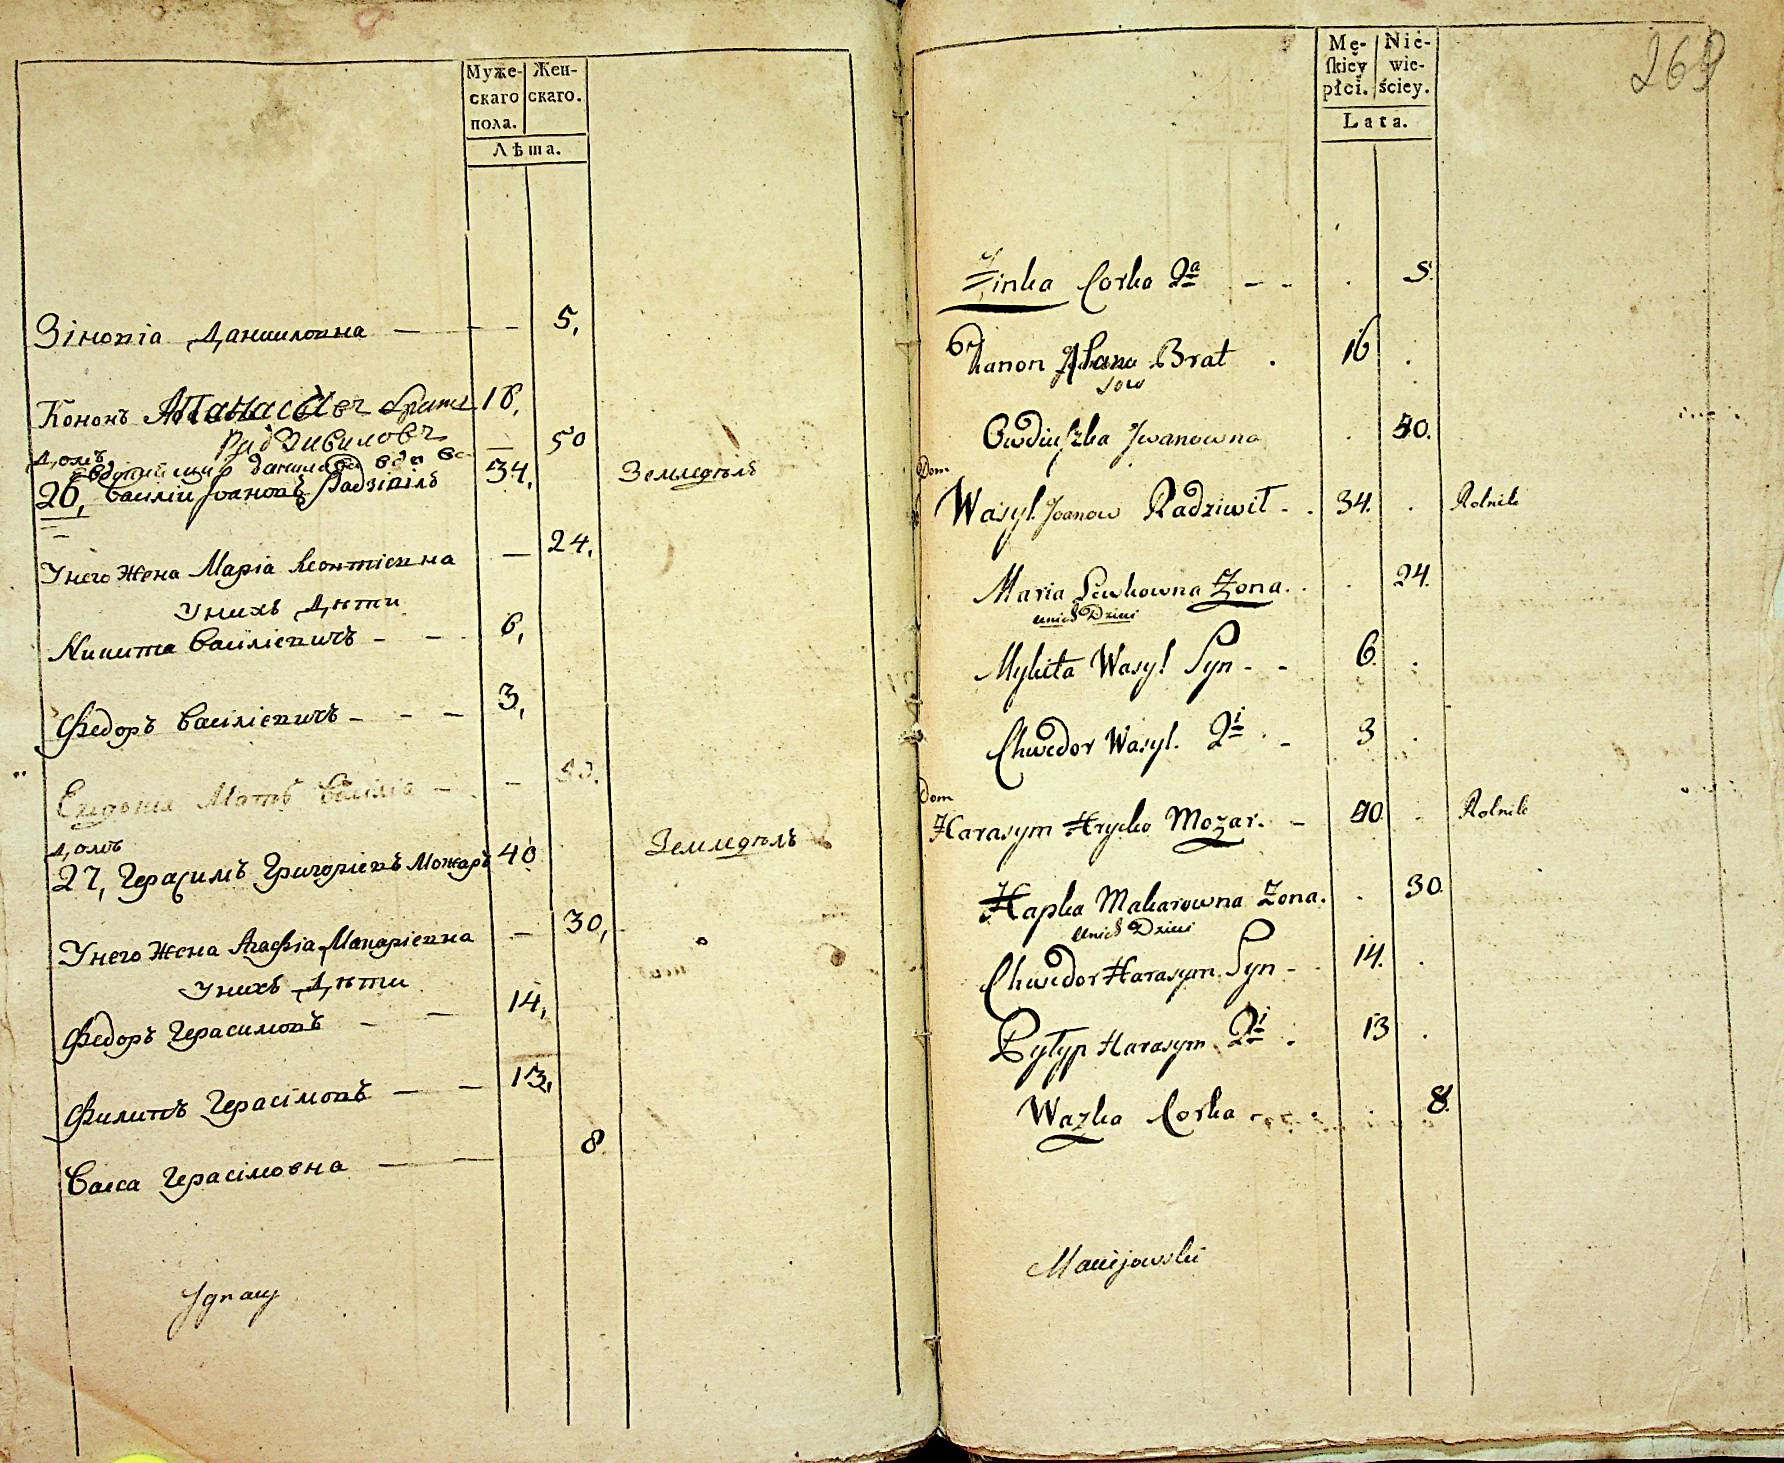 Муже-
скаго
пола.
Жен-
скаго.
Лѣта.
Зіновіа Данииловна — — — 5,
Кононъ Атанасовъ братъ 18,
Радзивиловъ — 50
Домъ
26, Василіи Іоановъ Радзівілъ 34, Земледѣлъ
У него Жена Маріа Леонтіевна — 24,
У нихъ Дѣти
Никита Василіевичъ — — 6,
Федоръ Василіевичъ — — — 3,
Мать Василіа — — 50.
Домъ
27, Герасимъ Григоріевъ Можаръ 40 Земледѣлъ
У него Жена Агафіа Макаріевна — 30,
У нихъ Дѣти
Федоръ Герасимовъ — — 14,
Филипъ Герасімовъ — — 13,
Васса Герасімовна — — 8.
Jgnacy
269
Mę-
skiey
płci.
Nie-
wie-
ściey.
Lata.
Zinka Corka 2a — — . 5.
Kanon Brat . 16 .
Owdiuszka Jwanowna . 50.
Dom
Wasyl Joanow Radziwił - . 34. . Rolnik
Maria Lewkowna Zona . . . 24.
unich Dzieci
Mykita Wasyl Syn - - 6. .
Chwedor Wasyl. 2i . - 3 .
Dom
Harasym Hrycko Mozar. - 40 . Rolnik
Hapka Makarowna Zona. . 30.
unich Dzieci
Chwedor Harasym Syn - . 14. .
Pyłyp Harasym 2i . 13 .
Wazka Corka 8.
Maciejowski